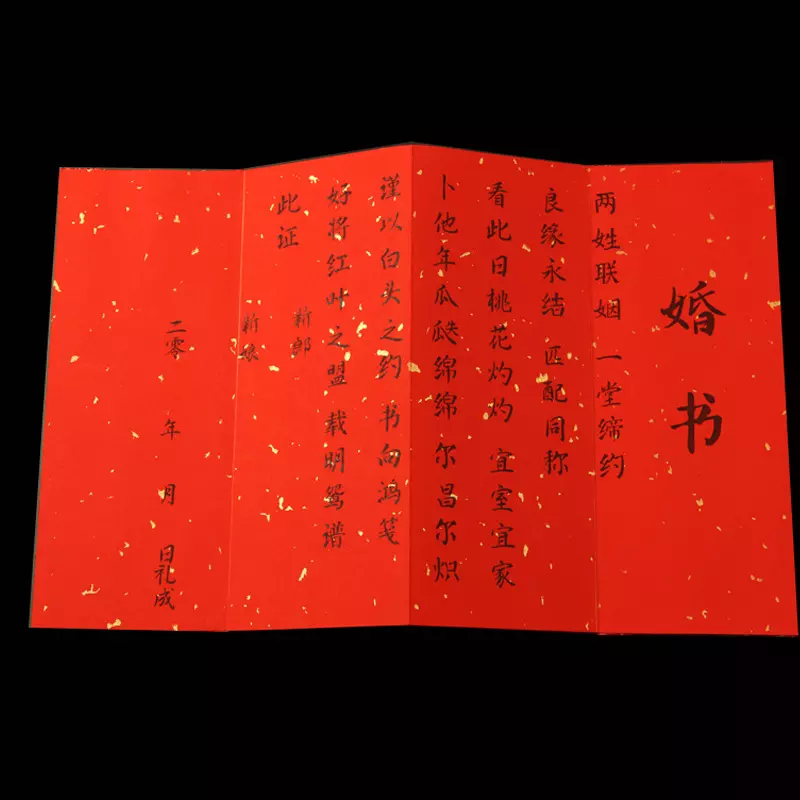 婚书
两姓联姻 一堂缔约
良缘永结 匹配同称
看此日桃花灼灼 宜室宜家
卜他年瓜瓞绵绵 尔昌尔炽
谨以白头之约 书向鸿笺
好将红叶之盟 载明鸳谱
此证
新郎
新娘
二零 年 月 日礼成